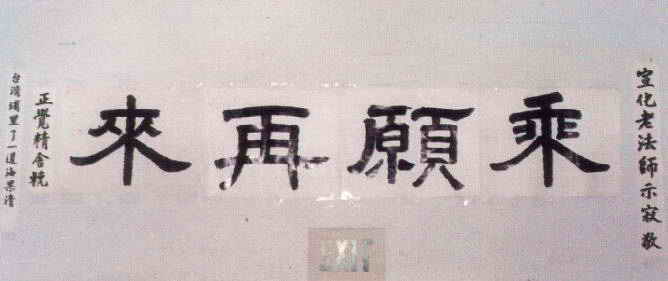 宣化老法師示寂敬
乘願再來
正覺精舍輓
台灣埔里了一道海果清